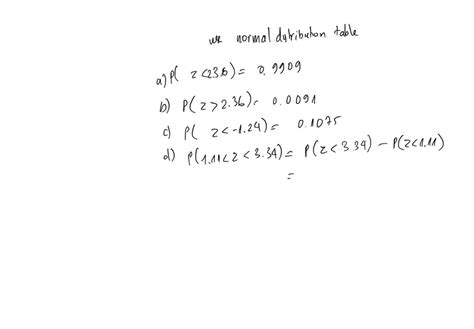 use normal dytribution table
a) P( z<236) = 0.9909
b) P( z>2.36) = 0.0091
c) P( z<-1.24) = 0.1075
d) P(1.11<z<3.34) = P(z<3.34) - P(z<1.11)
=